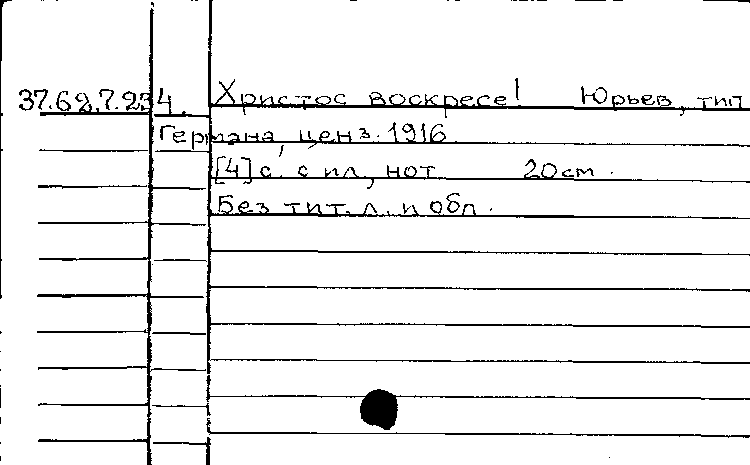 37.62.7.234 Христос воскресе! Юрьев, тип
Германа, ценз. 1916
[4] с. с ил, нот 20 см.
Без тит. л. и обл.